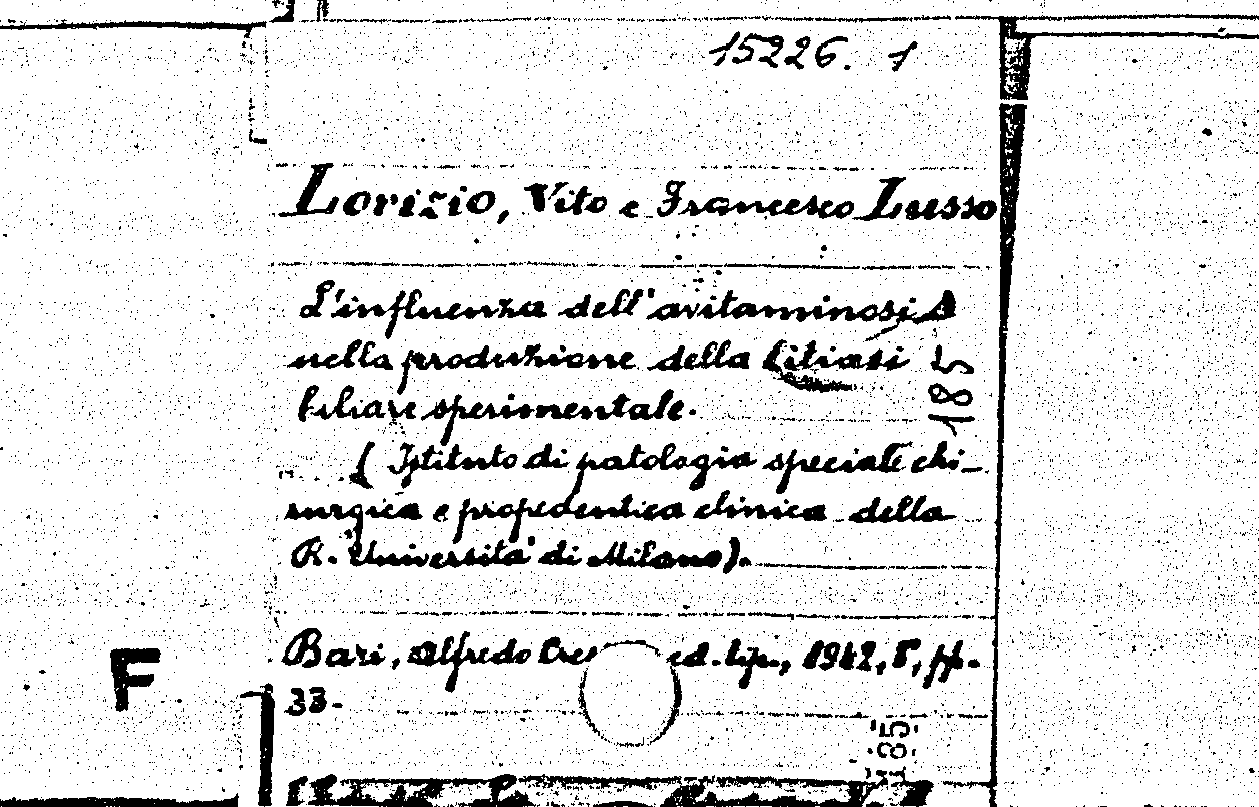 15226. 1
Lorizio, Vito e Francesco Lusso
L'influenza dell'avitaminosi A
nella produzione della litiasi
biliare sperimentale.
( Istituto di patologia speciale chi-
rurgica e propedeutica clinica della
R. Università di Milano).
Bari, Alfredo ed. tip., 1942, 8, pp.
33.
185
185
F